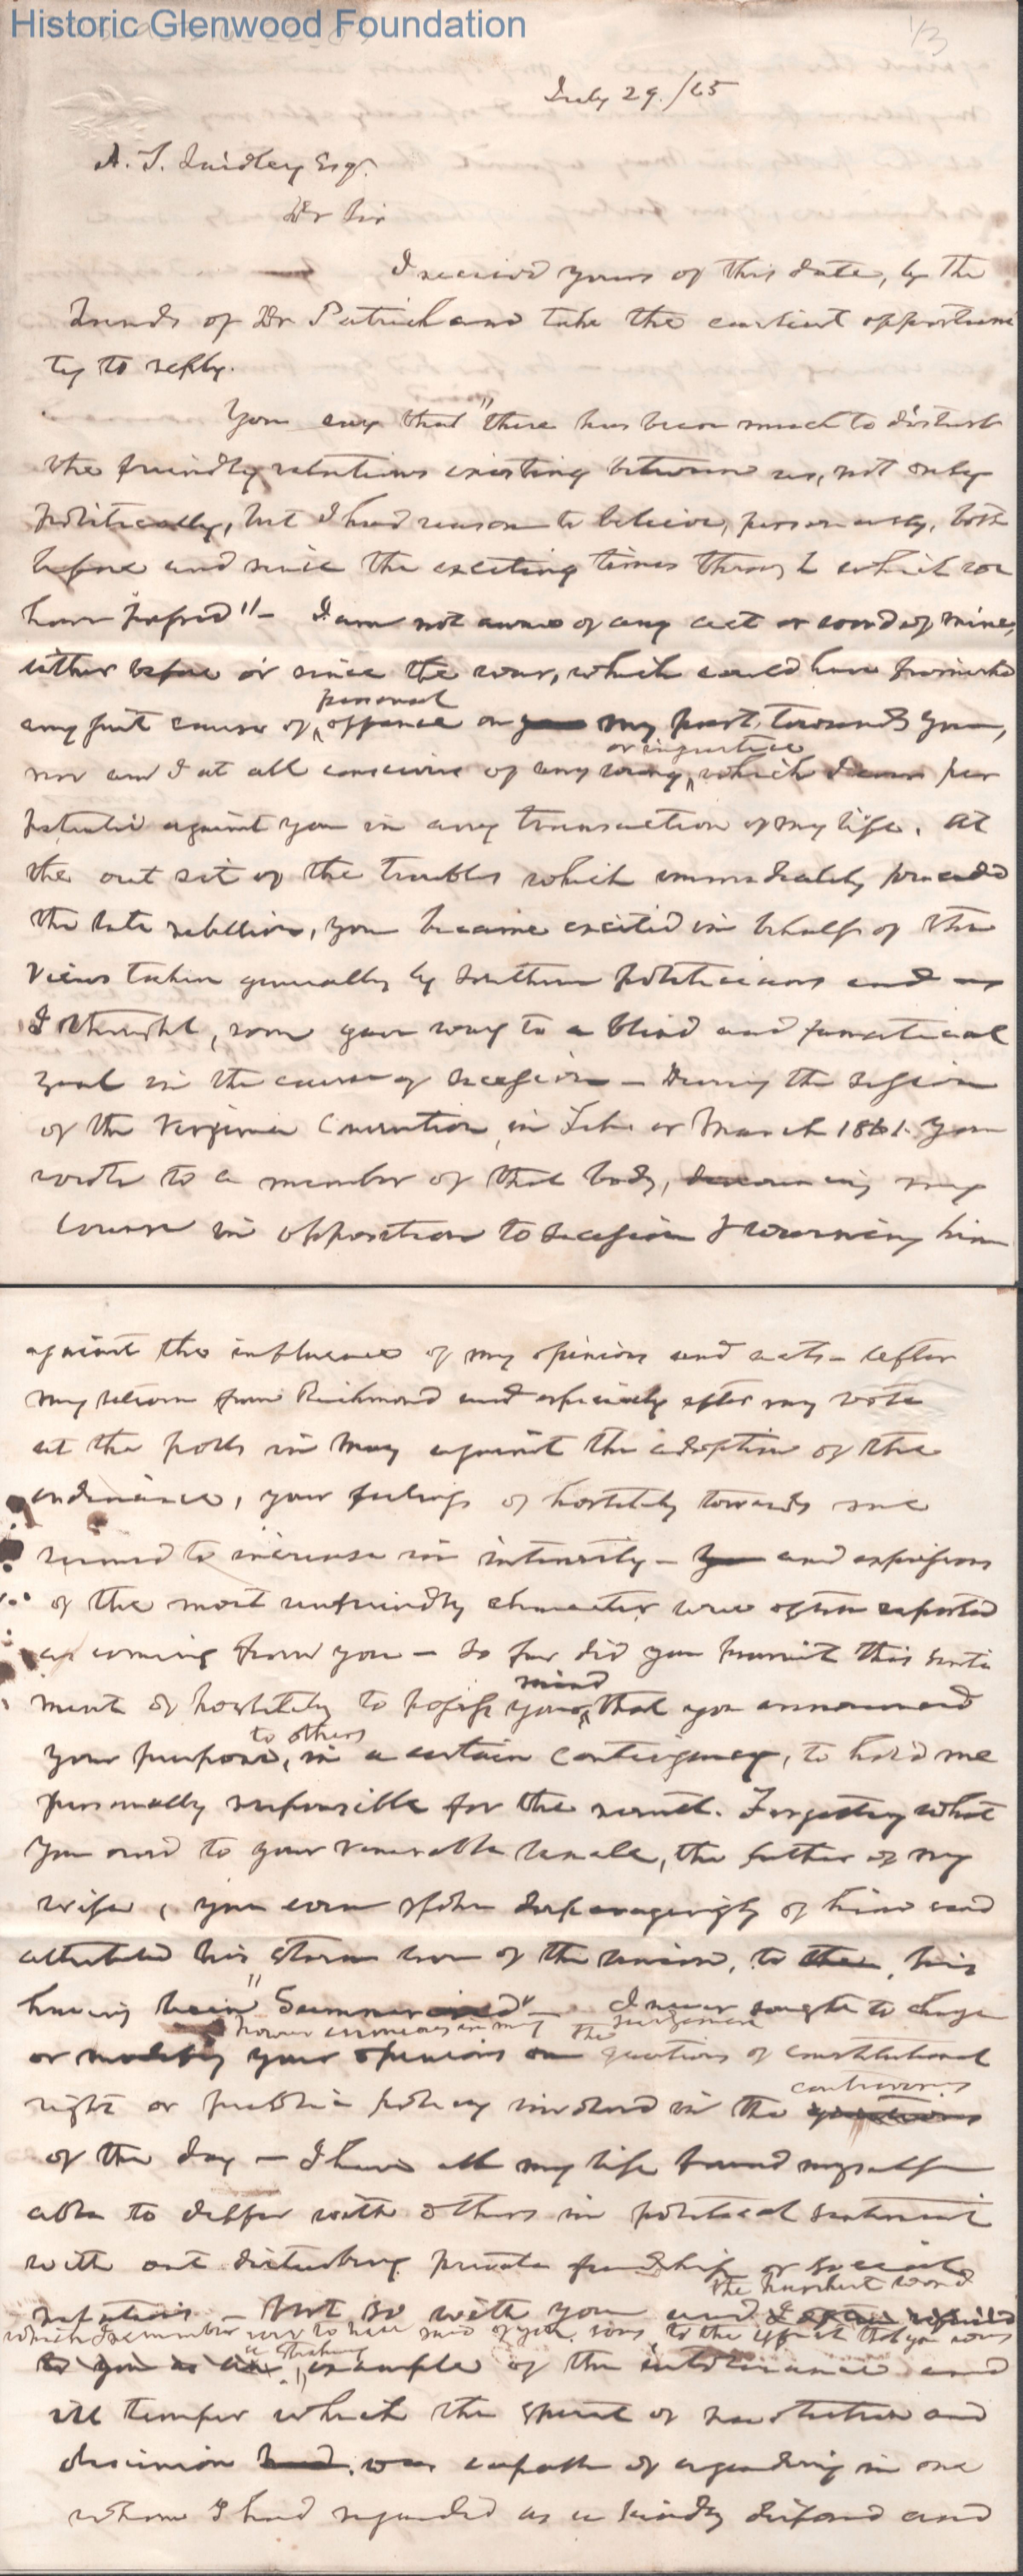 Historic Glenwood Foundation
1/3
July 29./65
A. T. Laidley Esqr.
Dr Sir
I received yours of this date, by the
hands of Dr Patrick and take the earliest opportuni
ty to reply.
You say that "there has been much to disturb
the friendly relations existing between us, not only
politically, but I had reason to believe, personally, both
before and since the exciting times through which we
have passed"- I am not aware of any act or word of mine,
either before or since the war, which could have furnished
personal
any just cause of offence on my part towards you,
or injustice
nor am I at all conscious of any wrong, which I ever per
petrated against you in any transaction of my life. At
the out set of the troubles which immediately preceded
the late rebellion, you became excited in behalf of the
views taken generally by southern politicians and as
I thought, soon gave way to a blind and fanatical
zeal in the cause of secession - During the session
of the Virginia Convention, in Feb. or March 1861. you
wrote to a member of that body, denouncing my
course in opposition to secession & warning him
against the influence of my opinions and acts - After
my return from Richmond and especially after my vote
at the polls in May against the adoption of the
ordinance, your feelings of hostility towards me
seemed to increase in intensity - and expressions
of the most unfriendly character were often reported
as coming from you - So far did you permit this senti
mind
ment of hostility to possess your that you announced
to others
your purpose, in a certain contingency, to hold me
personally responsible for the result. Forgetting what
you owed to your venerable uncle, the father of my
wife, you even spoke disparagingly of him and
attributed his stern love of the union, to his
having been "Summersed" - I never sought to change
however erroneous in my judgement
or modify your opinions on the questions of constitutional
controversies
right or public policy involved in the questions
of the day - I have all my life found myself
able to differ with others in political sentiment
with out disturbing private friendship or social
the harshest word
relations - Not so with you and
which I remember ever to have said of you was to the effect that you were
a striking
example of the intolerance and
ill temper which the spirit of revolution and
disunion was capable of engendering in one
whom I had regarded as a kindly disposed and